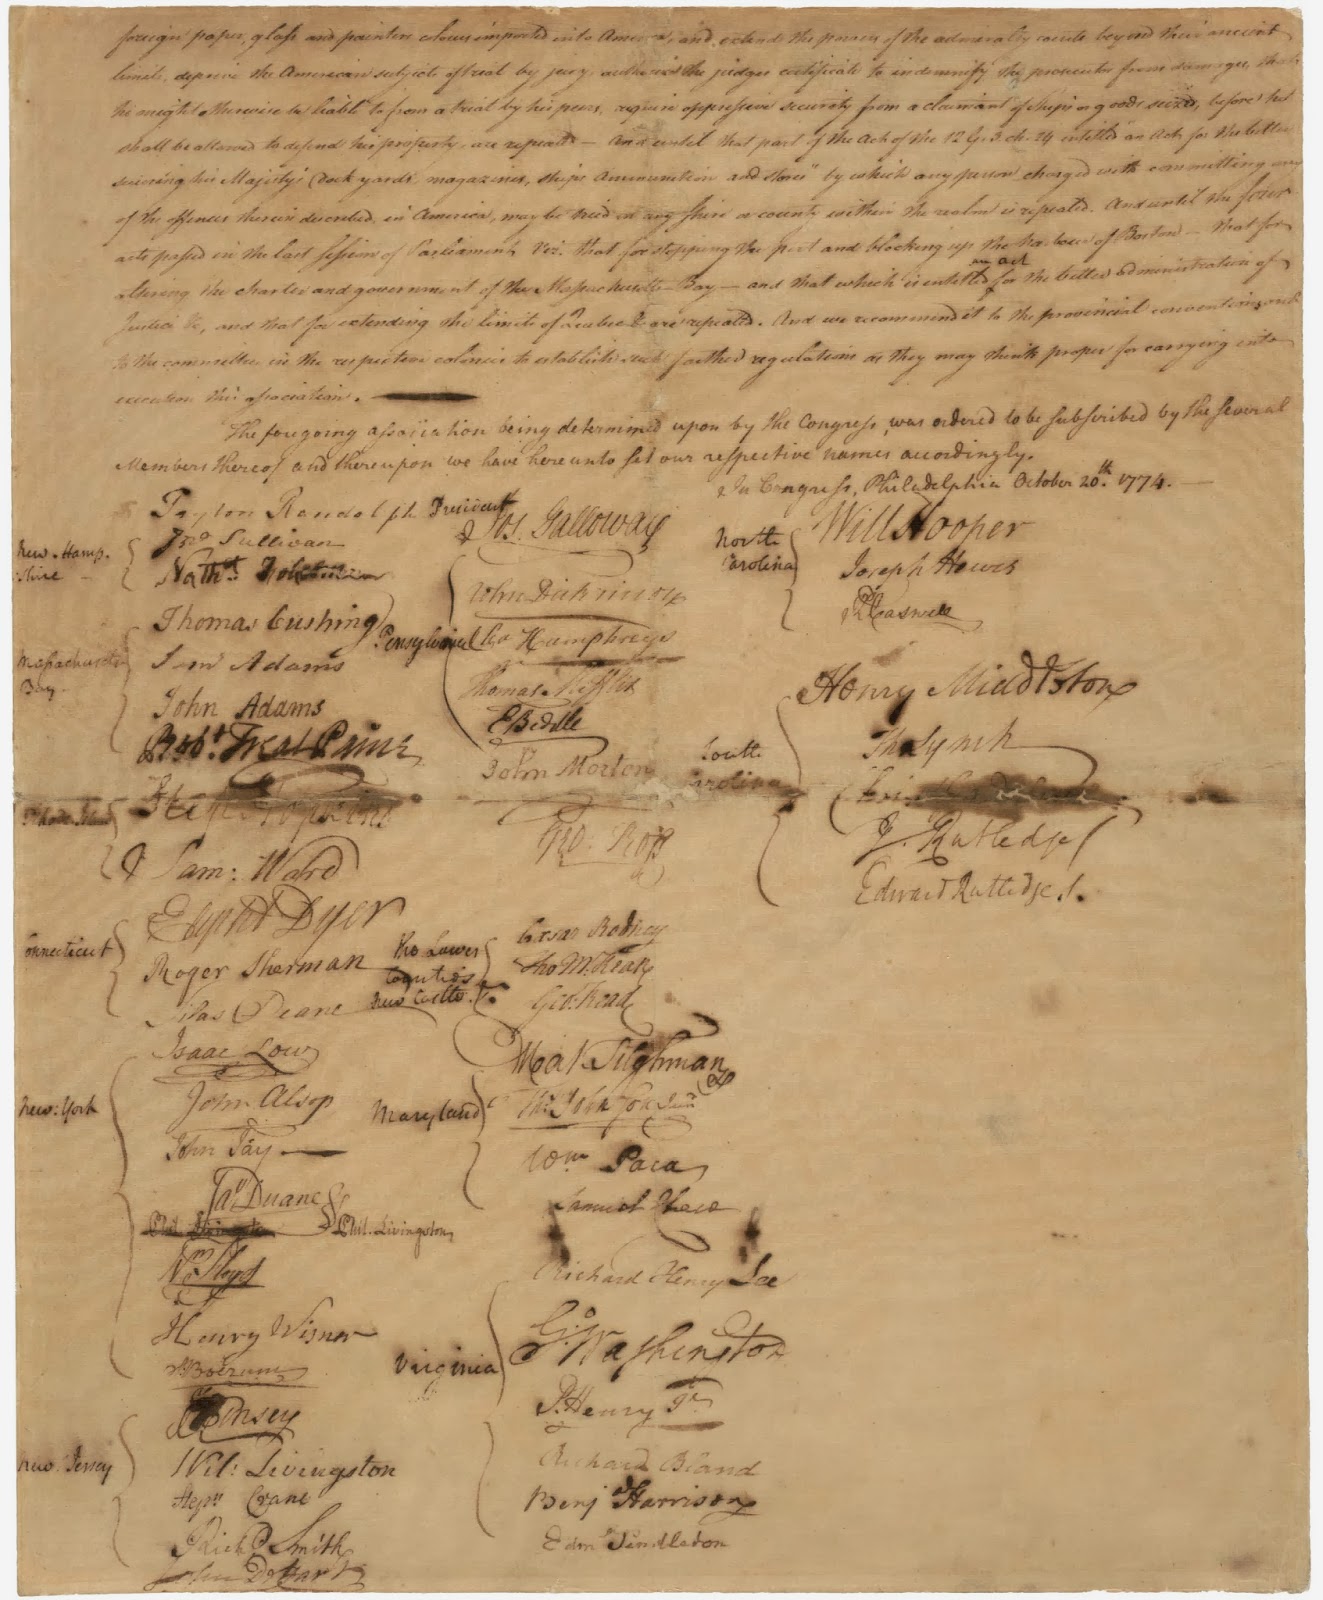 foreign paper, glass and painters colours imported into America, and extend the powers of the admiralty courts beyond their ancient
limits, deprive the American subject of trial by jury, authorise the judges certificate to indemnify the prosecutor from damages, that
he might otherwise be liable to from a trial by his peers, require oppressive security from a claimant of ships or goods seized, before he
shall be allowed to defend his property, are repealed — And until that part of the Act of the 12 G. 3 ch. 24 entitled "an Act for the better
securing his Majesty's Dock yards, magazines, ships Ammunition and stores" by which any person charged with committing any
of the offences therein described, in America, may be tried in any shire or county within the realm is repealed. And until the four
acts passed in the last session of Parliament Viz. that for stopping the port and blocking up the harbour of Boston — that for
altering the charter and government of the Massachusetts-Bay — and that which is entitled an act for the better administration of
Justice &c, and that for extending the limits of Quebec &c are repealed. And we recommend it to the provincial conventions, and
to the committees in the respective colonies to establish such farther regulations as they may think proper for carrying into
execution this association.
The foregoing association being determined upon by the Congress, was ordered to be subscribed by the several
Members thereof and thereupon we have hereunto set our respective names accordingly.
In Congress, Philadelphia October 20th. 1774. —
Peyton Randolph President
New-Hamp-
shire
Jno. Sullivan
Nathl. Folsom
Massachusetts
Bay
Thomas Cushing
Sam Adams
John Adams
Robt. Treat Paine
Rhode Island
Step Hopkins
Sam: Ward
Connecticut
Elipht Dyer
Roger Sherman
Silas Deane
New-York
Isaac Low
John Alsop
John Jay
Jas. Duane
Phil. Livingston
Phil. Livingston
Wm Floyd
Henry Wisner
S Boerum
New Jersey
J Kinsey
Wil: Livingston
Stepn Crane
Richd. Smith
John De Hart
Pensylvania
Jos. Galloway
John Dickinson
Cha Humphreys
Thomas Mifflin
E Biddle
John Morton
Geo: Ross
The Lower
Counties
New Castle
Cæsar Rodney
Tho M:Kean
Geo: Read
Maryland
Mat Tilghman
Ths. Johnson Junr
Wm Paca
Samuel Chase
Virginia
Richard Henry Lee
Go. Washington
P. Henry Jr.
Richard Bland
Benja Harrison
Edmd. Pendleton
North
Carolina
Will Hooper
Joseph Hewes
Rd Caswell
South
Carolina
Henry Middleton
Tho Lynch
J. Rutledge
Edward Rutledge.